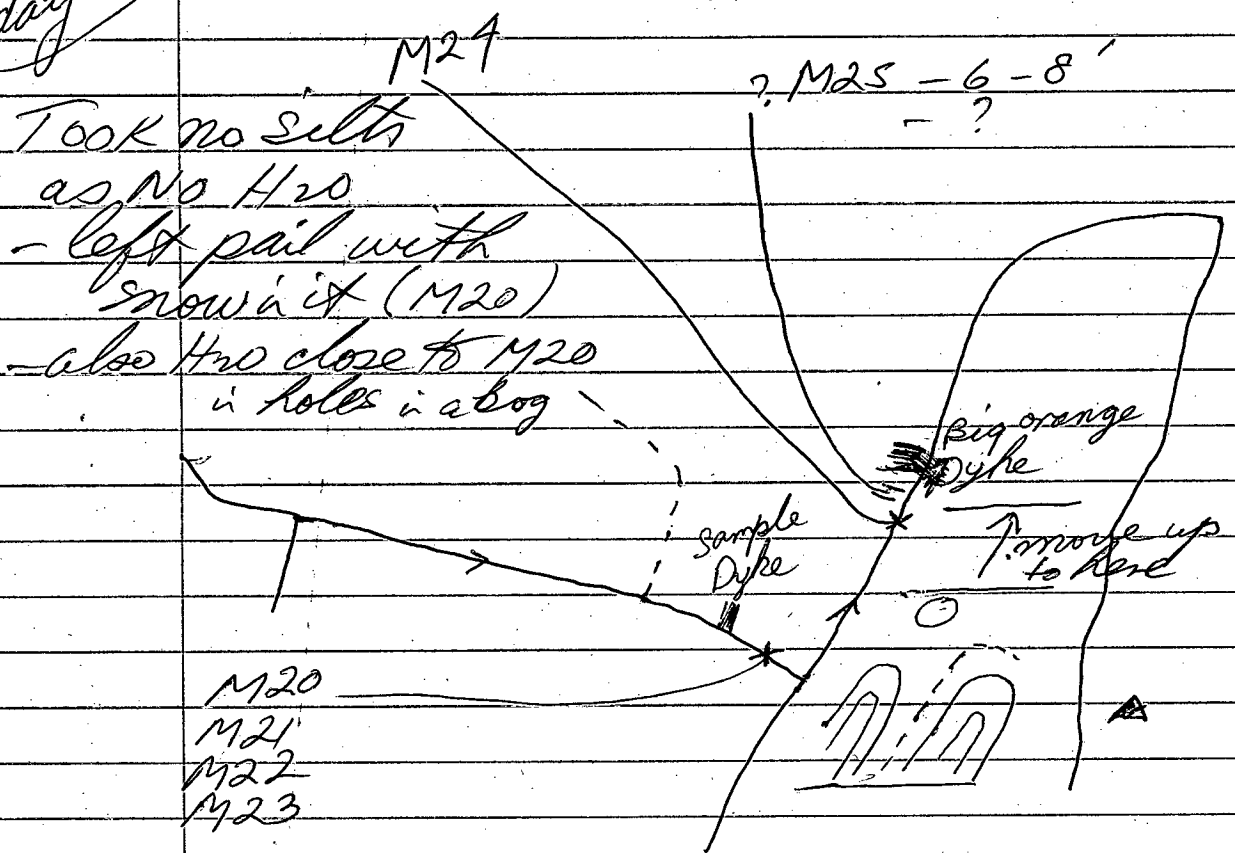 day
M24
? M25 - 6 - 8'
- ?
Took no silts
as No H2O
- left pail with
snow in it (M20)
- also H2O close to M20
in holes in a bog
Big orange
Dyke
Sample
Dyke
↑ move up
to here
M20
M21
M22
M23